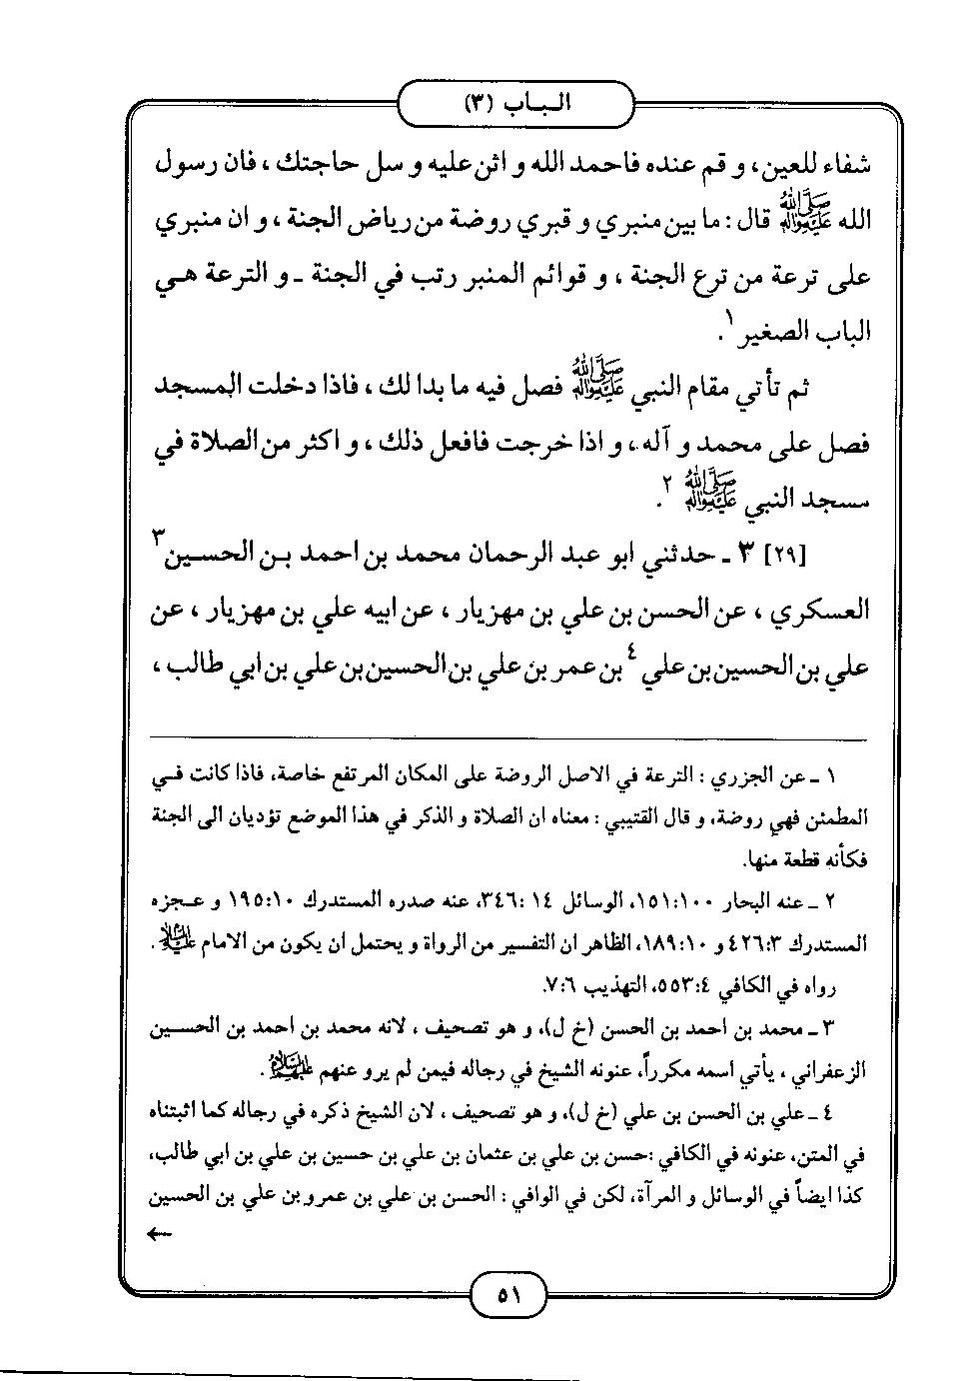 الباب (٣)
شفاء للعين، و قم عنده فاحمد الله و اثن عليه و سل حاجتك ، فان رسول
الله ﷺ قال : ما بين منبري و قبري روضة من رياض الجنة ، و ان منبري
على ترعة من ترع الجنة ، و قوائم المنبر رتب في الجنة ـ و الترعة هي
الباب الصغير ١.
ثم تأتي مقام النبي ﷺ فصل فيه ما بدا لك ، فاذا دخلت المسجد
فصل على محمد و آله ، و اذا خرجت فافعل ذلك ، و اكثر من الصلاة في
مسجد النبي ﷺ ٢.
[٢٩] ٣ ـ حدثني ابو عبد الرحمان محمد بن احمد بن الحسين ٣
العسكري ، عن الحسن بن علي بن مهزيار ، عن ابيه علي بن مهزيار ، عن
علي بن الحسين بن علي ٤ بن عمر بن علي بن الحسين بن علي بن ابي طالب ،
١ ـ عن الجزري : الترعة في الاصل الروضة على المكان المرتفع خاصة، فاذا كانت في
المطمئن فهي روضة، و قال القتيبي : معناه ان الصلاة و الذكر في هذا الموضع تؤديان الى الجنة
فكأنه قطعة منها.
٢ ـ عنه البحار ١٠٠:١٥١، الوسائل ١٤:٣٤٦، عنه صدره المستدرك ١٠:١٩٥ و عجزه
المستدرك ٣:٤٢٦ و ١٠:١٨٩، الظاهر ان التفسير من الرواة و يحتمل ان يكون من الامام عليه السلام .
رواه في الكافي ٤:٥٥٣، التهذيب ٦:٧.
٣ ـ محمد بن احمد بن الحسن (خ ل)، و هو تصحيف ، لانه محمد بن احمد بن الحسين
الزعفراني ، يأتي اسمه مكرراً، عنونه الشيخ في رجاله فيمن لم يرو عنهم عليهم السلام .
٤ ـ علي بن الحسن بن علي (خ ل)، و هو تصحيف ، لان الشيخ ذكره في رجاله كما اثبتناه
في المتن، عنونه في الكافي :حسن بن علي بن عثمان بن علي بن حسين بن علي بن ابي طالب،
كذا ايضاً في الوسائل و المرآة، لكن في الوافي : الحسن بن علي بن عمرو بن علي بن الحسين
←
٥١